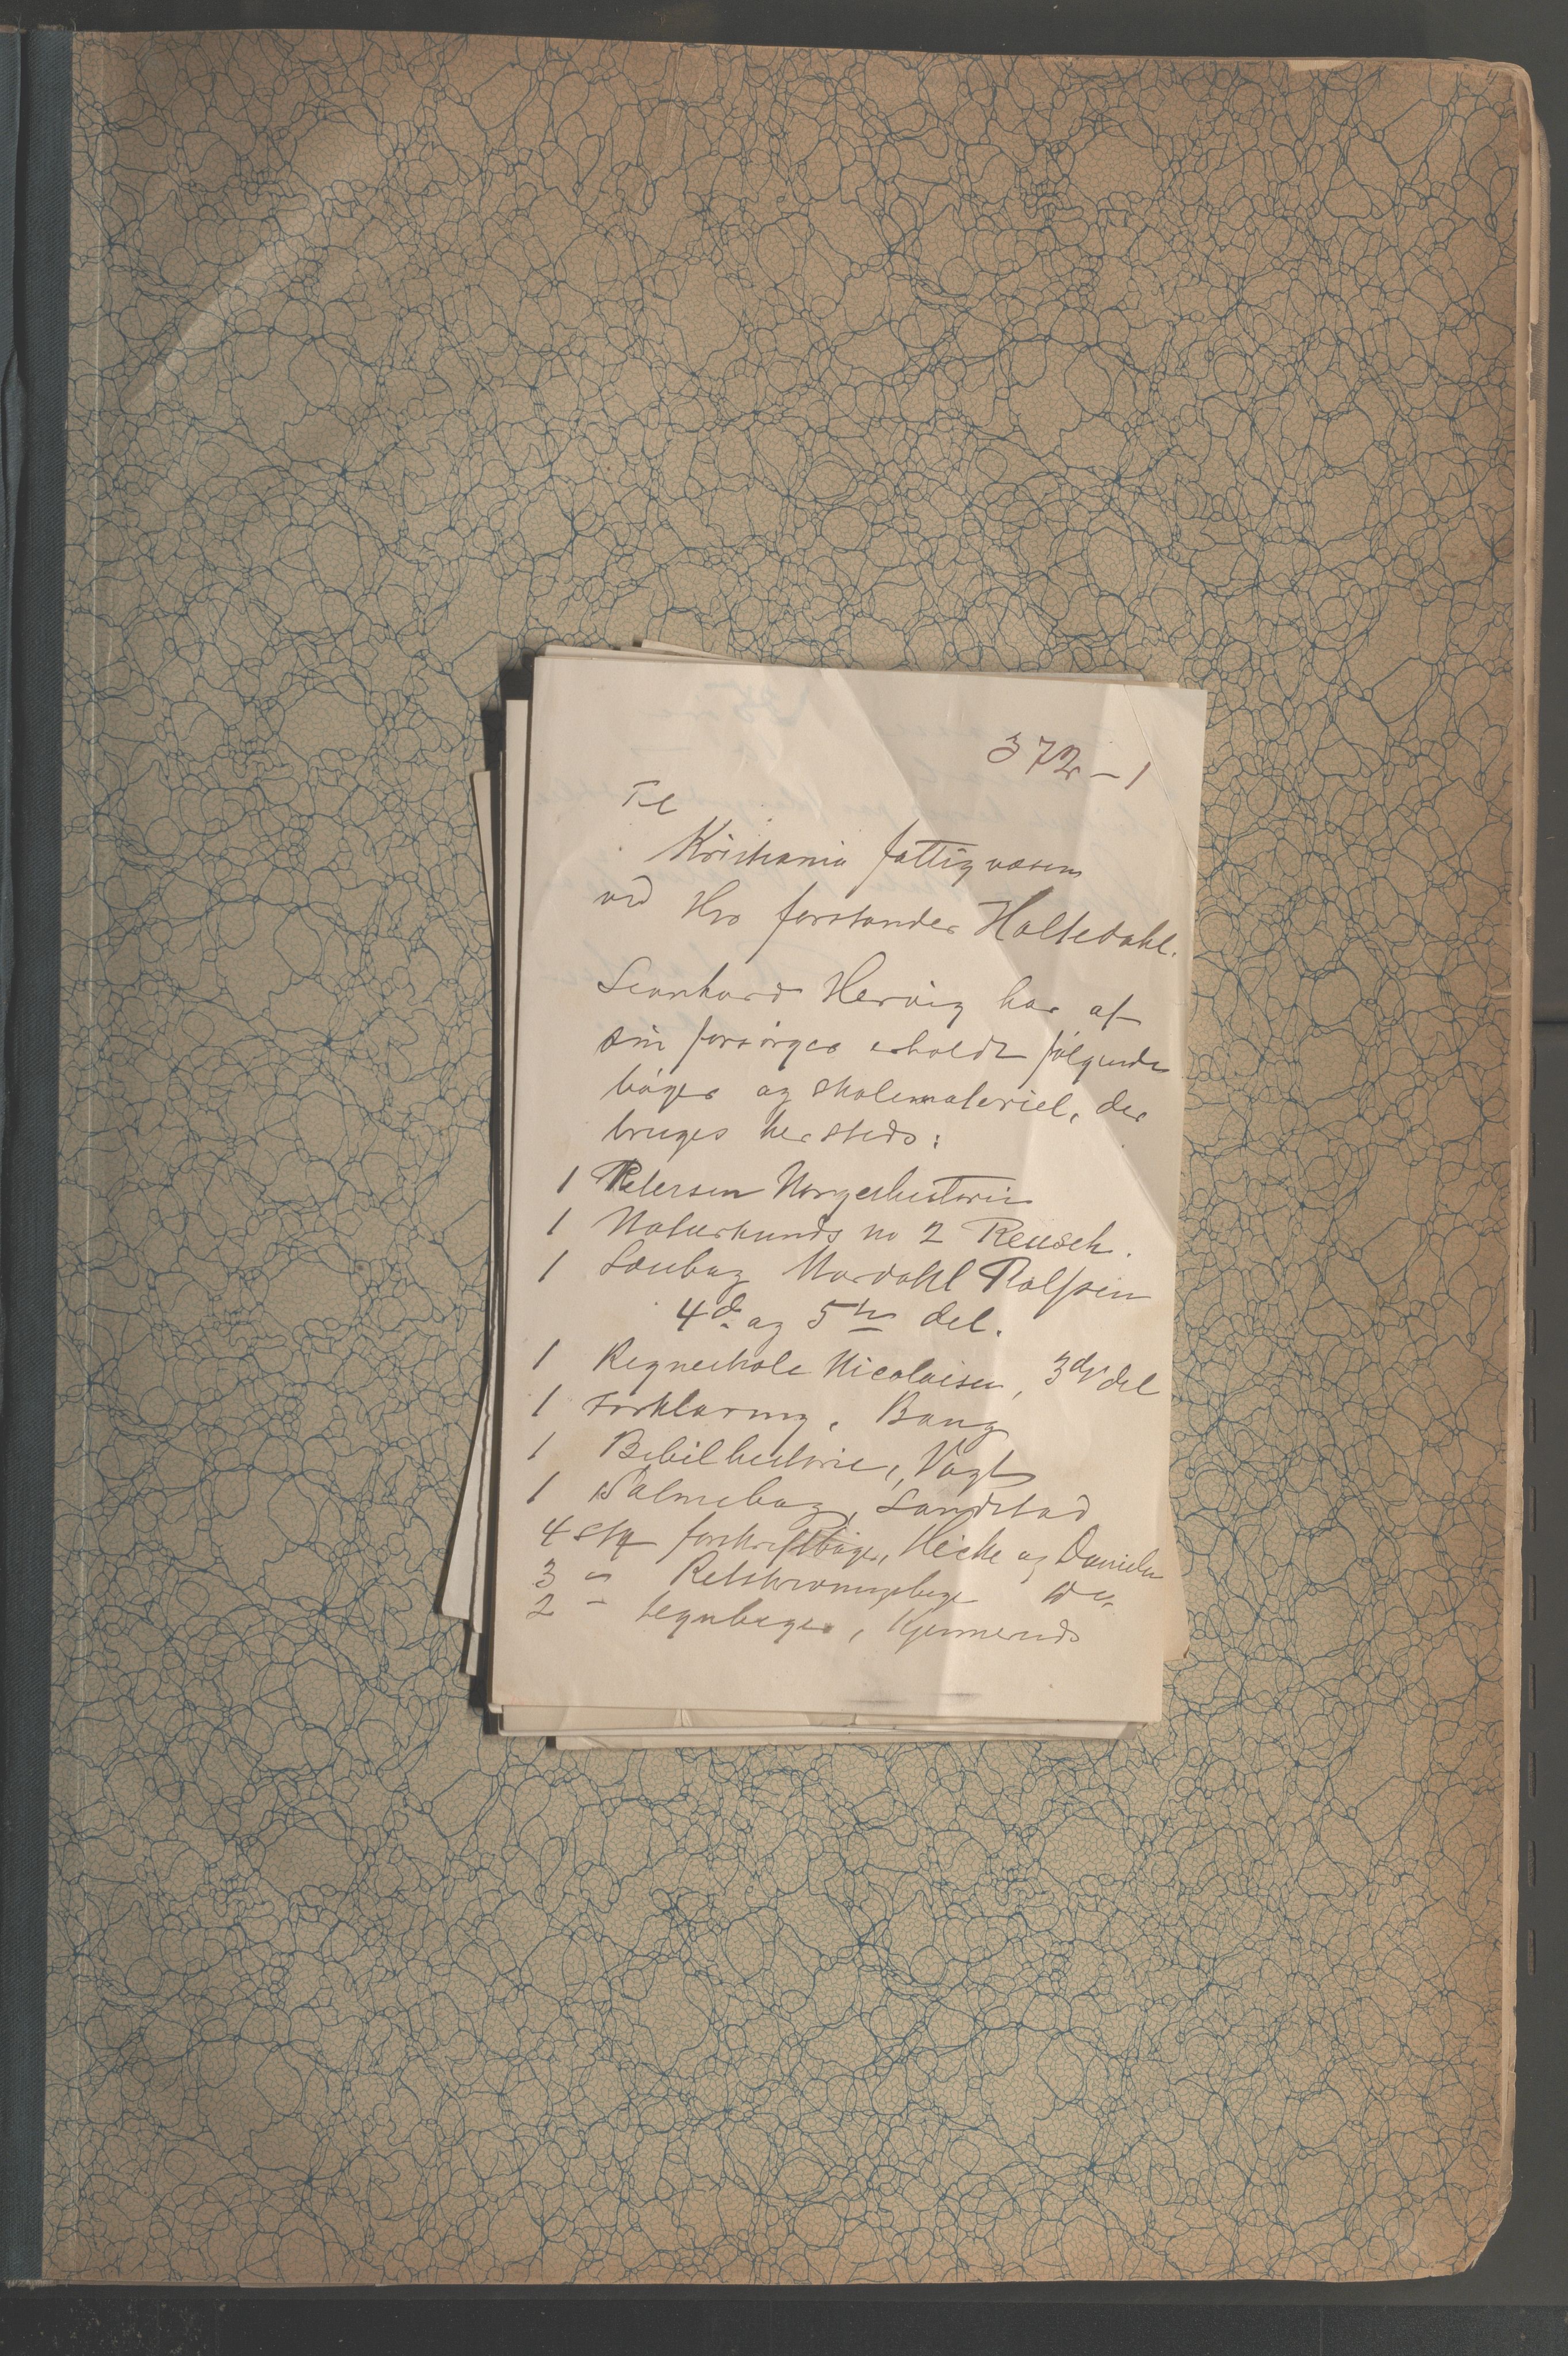 372-1
Til
Kristiania fattigvæsen
ved Hro forstander Holtedahl.
Leonhard Hervig har af
sin forsörger erholdt fölgende
böger og skolemateriel, der
bruges hersteds:
1 Petersen Norgeshistorie
1 Naturkunds no 2 Reusch.
1 Læsebog Nordahl Rolfsen
4de og 5te del.
1 Regneskole Nicolaisen, 3die del
1 Forklaring, Bang
1 Bibelhistorie, Vogt
1 Salmebog, Landstad
4 stk forskriftböger, Hicke og Danielsen
3 " Retskrivningsböger
2 " tegnböger, Kjennerud